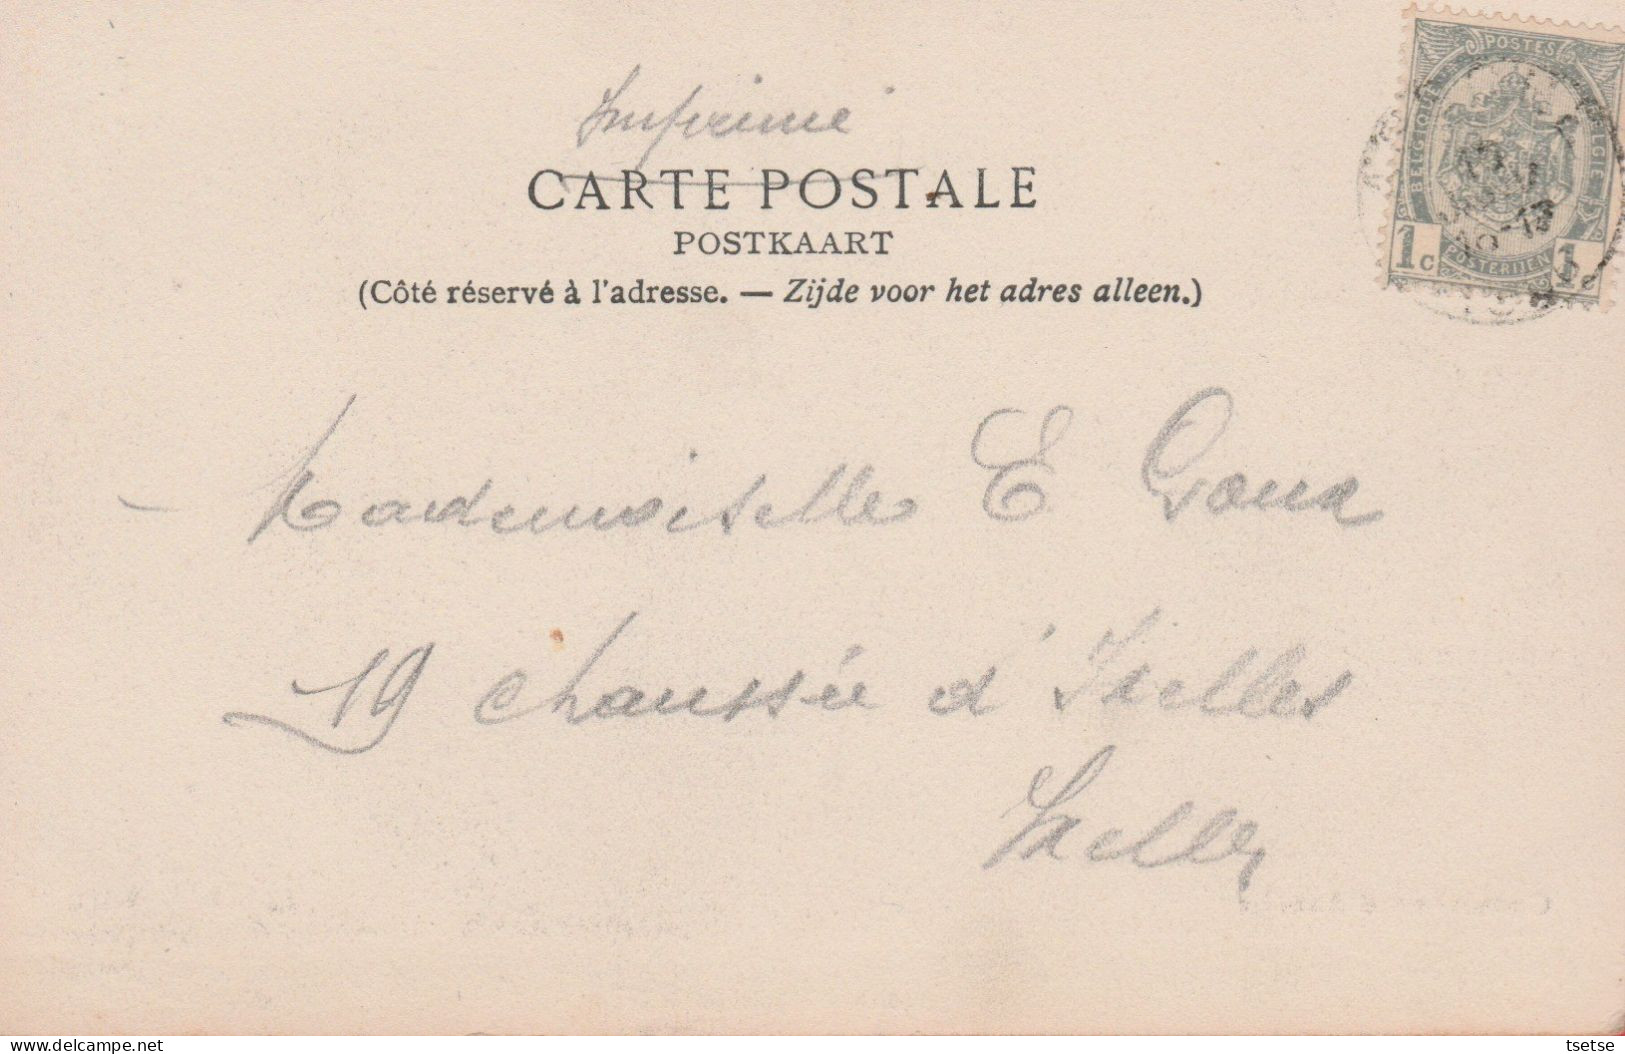 Imprimé
CARTE POSTALE
POSTKAART
(Côté réservé à l'adresse. — Zijde voor het adres alleen.)
POSTES
BELGIQUE
BELGIE
1c 1c
POSTERIJEN
Mademoiselle E
19 chaussée d'Ixelles
Ixelles
www.delcampe.net
tsetse